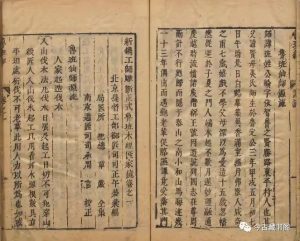 魯班仙師源流
師諱班姓公輸字依智魯之賢勝路東平村人也其
父諱賢母吳氏師生於魯定公三年甲戌五月初七
日午時是日白鶴羣集異香滿室經月弗散人咸奇
之甫七歲嬉戲不學父母深以為憂迨十五歲忽幡
然從遊於子夏之門人端木起不數月遂妙理融通
度越時流憤諸侯僭稱王號因遊說列國志在尊周
而計不行廼歸而隱于泰山之南小和山焉晦迹幾
一十三年偶出而遇鮑老輩促膝讌譚竟受業其
新鐫工師雕斲正式魯班木經匠家鏡卷之一
北京提督工部御匠司司正午榮彙編
局匠所把總章嚴仝集
南京逓匠司司承周言校正
魯班仙師源流
人家起造伐木
入山伐木法凡伐木日辰及起工日切不可犯穿山
殺匠人入山伐木起工且用看好木頭根數具立
平坦處斫伐不可老草此用人力以所為也如或
今古藏書館